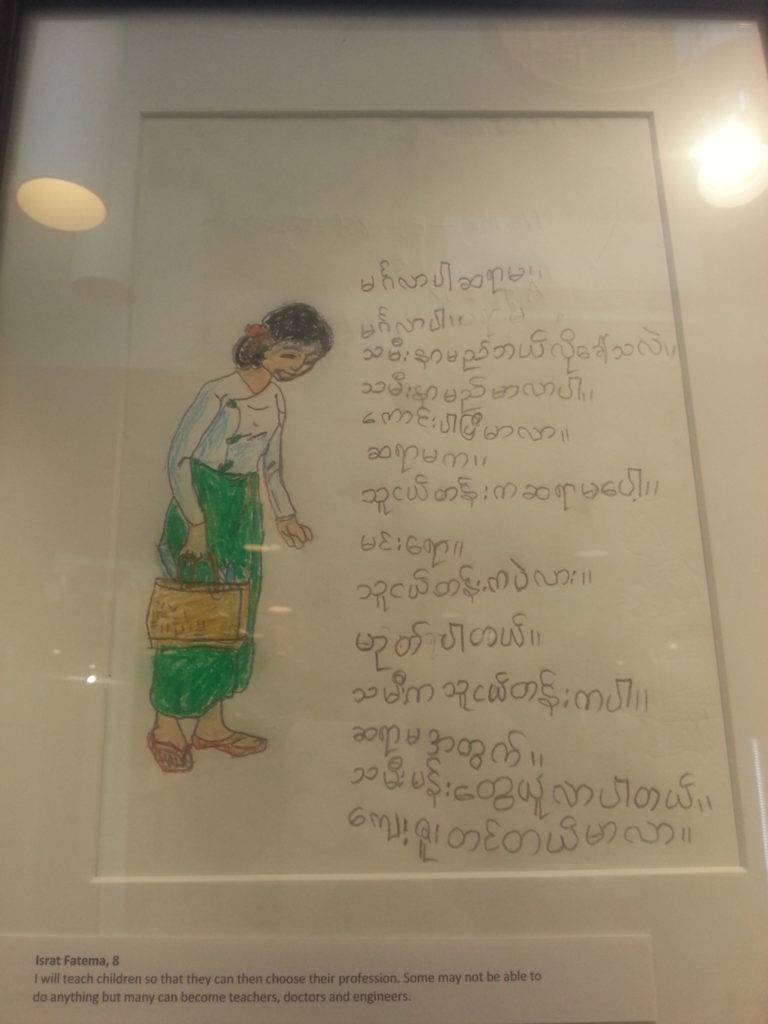 မင်္ဂလာပါဆရာမ။
မင်္ဂလာပါ။
သမီးနာမည်ဘယ်လိုခေါ်သလဲ။
သမီးနာမည်မာလာပါ။
ကောင်းပါပြီမာလာ။
ဆရာမက။
သူငယ်တန်းကဆရာမပေါ့။
မင်းရော။
သူငယ်တန်းကပဲလား။
ဟုတ်ပါတယ်။
သမီးက သူငယ်တန်းကပါ။
ဆရာမအတွက်။
သမီးပန်းတွေယူလာပါတယ်။
ကျေးဇူးတင်တယ်မာလာ။
Israt Fatema, 8
I will teach children so that they can then choose their profession. Some may not be able to
do anything but many can become teachers, doctors and engineers.